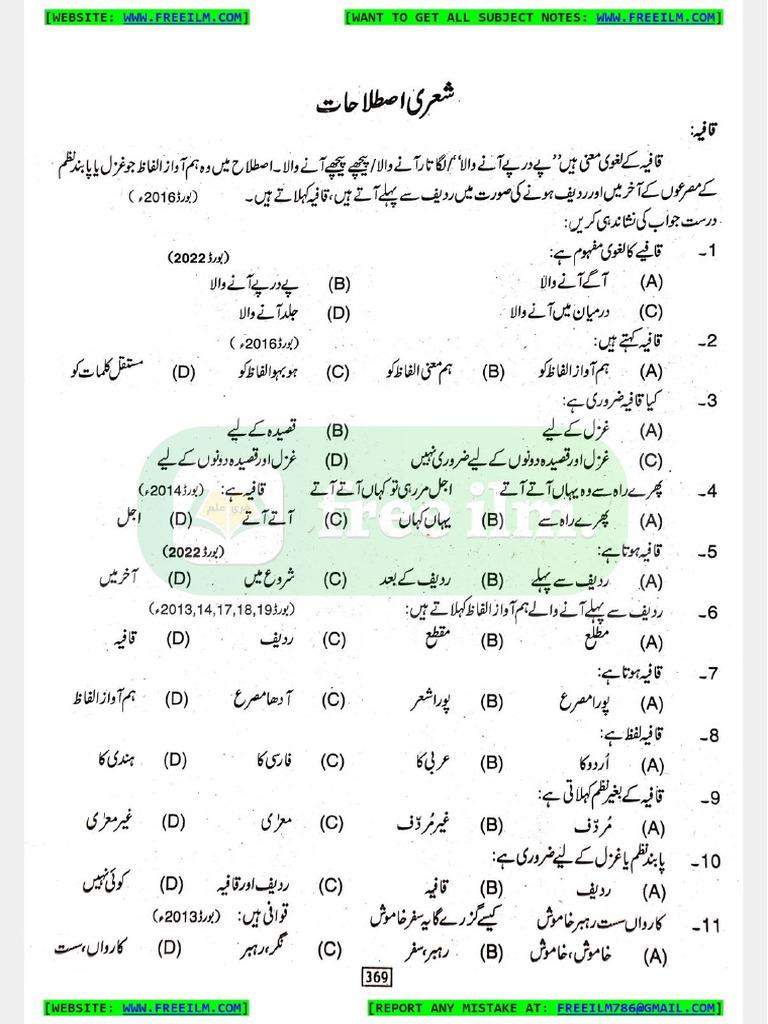 [WEBSITE: WWW.FREEILM.COM] [WANT TO GET ALL SUBJECT NOTES: WWW.FREEILM.COM]
شعری اصطلاحات
قافیہ:
قافیہ کے لغوی معنی ہیں ’’پے در پے آنے والا‘‘/لگاتار آنے والا/پیچھے پیچھے آنے والا۔ اصطلاح میں وہ ہم آواز الفاظ جو غزل یا پابند نظم
کے مصرعوں کے آخر میں اور ردیف ہونے کی صورت میں ردیف سے پہلے آتے ہیں، قافیہ کہلاتے ہیں۔ (بورڈ 2016ء)
درست جواب کی نشاندہی کریں:
1۔ قافیے کا لغوی مفہوم ہے: (بورڈ 2022)
(A) آگے آنے والا (B) پے در پے آنے والا
(C) درمیان میں آنے والا (D) جلد آنے والا
2۔ قافیہ کہتے ہیں: (بورڈ 2016ء)
(A) ہم آواز الفاظ کو (B) ہم معنی الفاظ کو (C) ہوبہو الفاظ کو (D) مستقل کلمات کو
3۔ کیا قافیہ ضروری ہے:
(A) غزل کے لیے (B) قصیدہ کے لیے
(C) غزل اور قصیدہ دونوں کے لیے ضروری نہیں (D) غزل اور قصیدہ دونوں کے لیے
4۔ پھرے راہ سے وہ یہاں آتے آتے اجل مر رہی تو کہاں آتے آتے قافیہ ہے: (بورڈ 2014ء)
(A) پھرے راہ سے (B) یہاں کہاں (C) آتے آتے (D) اجل
5۔ قافیہ ہوتا ہے: (بورڈ 2022)
(A) ردیف سے پہلے (B) ردیف کے بعد (C) شروع میں (D) آخر میں
6۔ ردیف سے پہلے آنے والے ہم آواز الفاظ کہلاتے ہیں: (بورڈ 2013,14,17,18,19ء)
(A) مطلع (B) مقطع (C) ردیف (D) قافیہ
7۔ قافیہ ہوتا ہے:
(A) پورا مصرع (B) پورا شعر (C) آدھا مصرع (D) ہم آواز الفاظ
8۔ قافیہ لفظ ہے:
(A) اُردو کا (B) عربی کا (C) فارسی کا (D) ہندی کا
9۔ قافیہ کے بغیر نظم کہلاتی ہے:
(A) مُردّف (B) غیر مُردّف (C) معرّٰی (D) غیر معرّٰی
10۔ پابند نظم یا غزل کے لیے ضروری ہے:
(A) ردیف (B) قافیہ (C) ردیف اور قافیہ (D) کوئی نہیں
11۔ کارواں ست رہبر خاموش کیسے گزرے گا یہ سفر خاموش قوافی ہیں: (بورڈ 2013ء)
(A) خاموش، خاموش (B) رہبر، سفر (C) نگر، رہبر (D) کارواں، ست
369
free ilm.
فري علم
[WEBSITE: WWW.FREEILM.COM] [REPORT ANY MISTAKE AT: FREEILM786@GMAIL.COM]